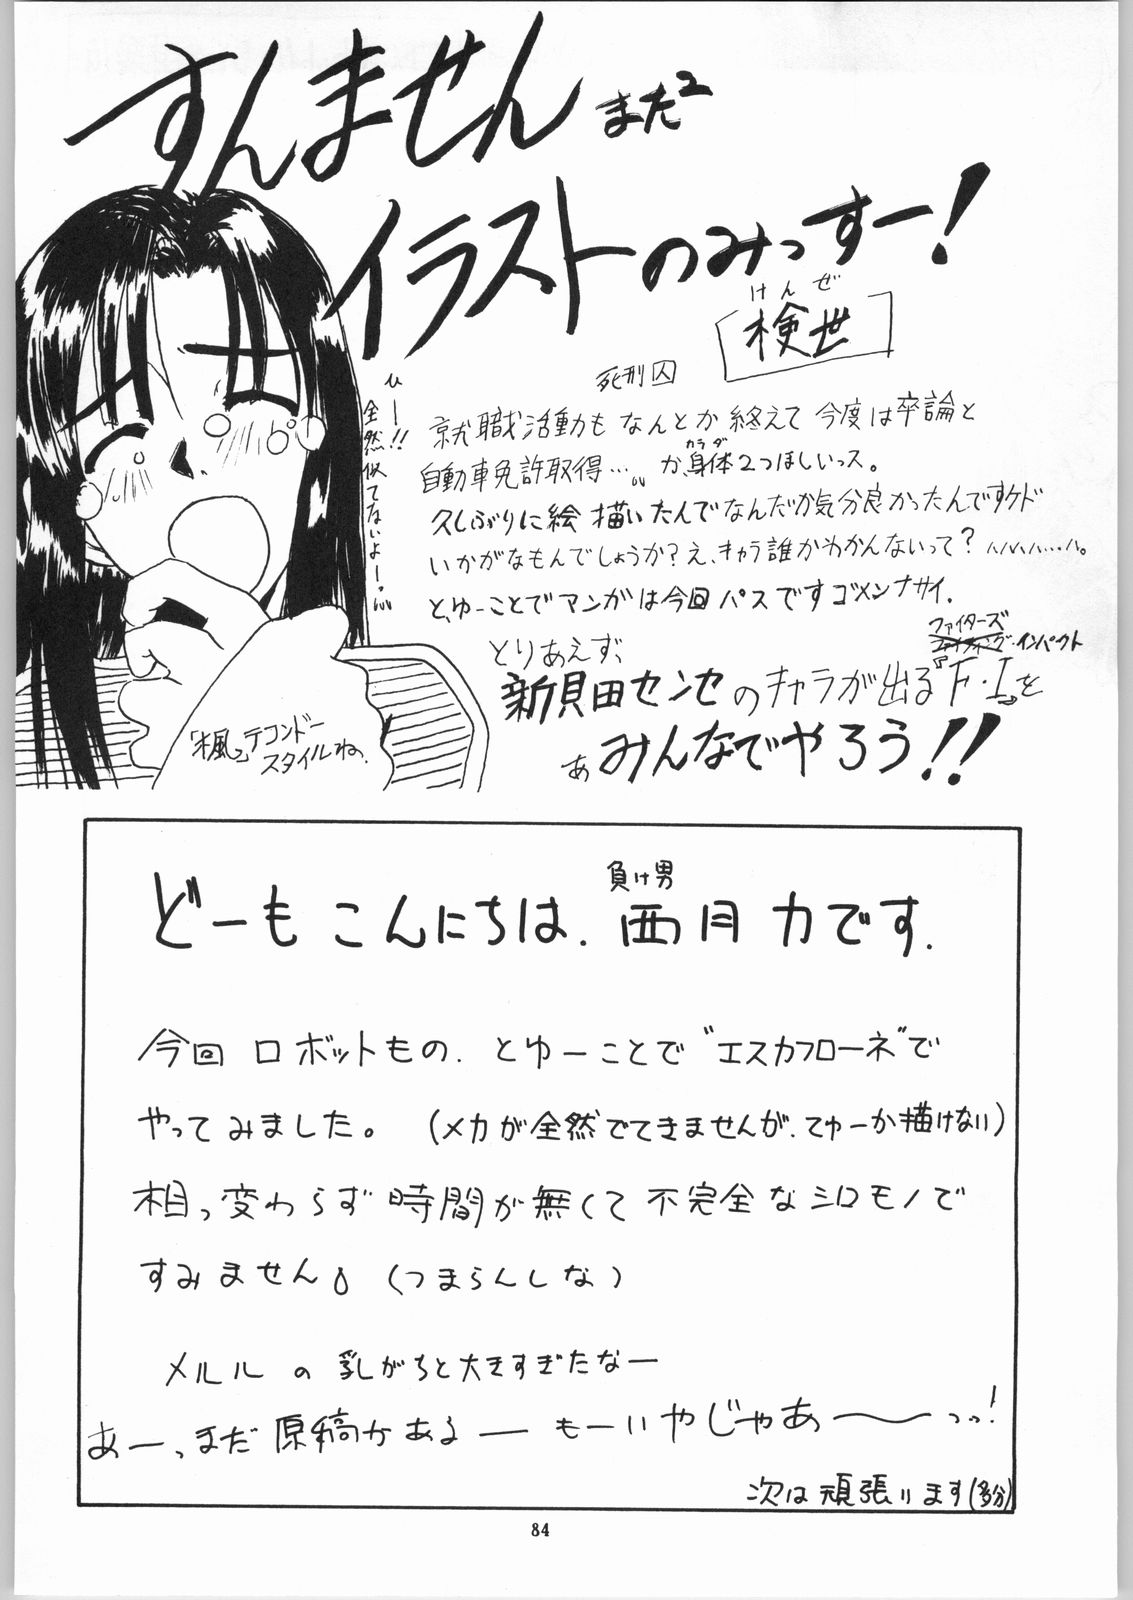 すんません まだ²
イラストのみっすー!
けんぜ
[検世]
死刑囚
就職活動もなんとか終えて今度は卒論と
カラダ
自動車免許取得…。か、身体2つほしいっス。
久しぶりに絵描いたんでなんだか気分良かったんですケド
いかがなもんでしょうか?え、キャラ誰かわかんないって?ハハハハ…ハ。
と、ゆーことでマンガは今回パスですゴメンナサイ.
とりあえず、
ファイターズ
・インパクト
新貝田センセのキャラが出る『F・I』を
あ みんなでやろう!!
ひー!!
全然似てないよー.
「楓」テコンドー
スタイルね.
負け男
どーもこんにちは.西月力です.
今回ロボットもの.とゆーことで"エスカフローネ"で
やってみました。(メカが全然でてきませんが.てゆーか描けない)
相っ変わらず時間が無くて不完全なシロモノで
すみません(つまらんしな)
メルルの乳がちと大きすぎたなー
あーっまだ原稿がある──もーいやじゃあ〜〜っっ!
次は頑張ります(多分)
84